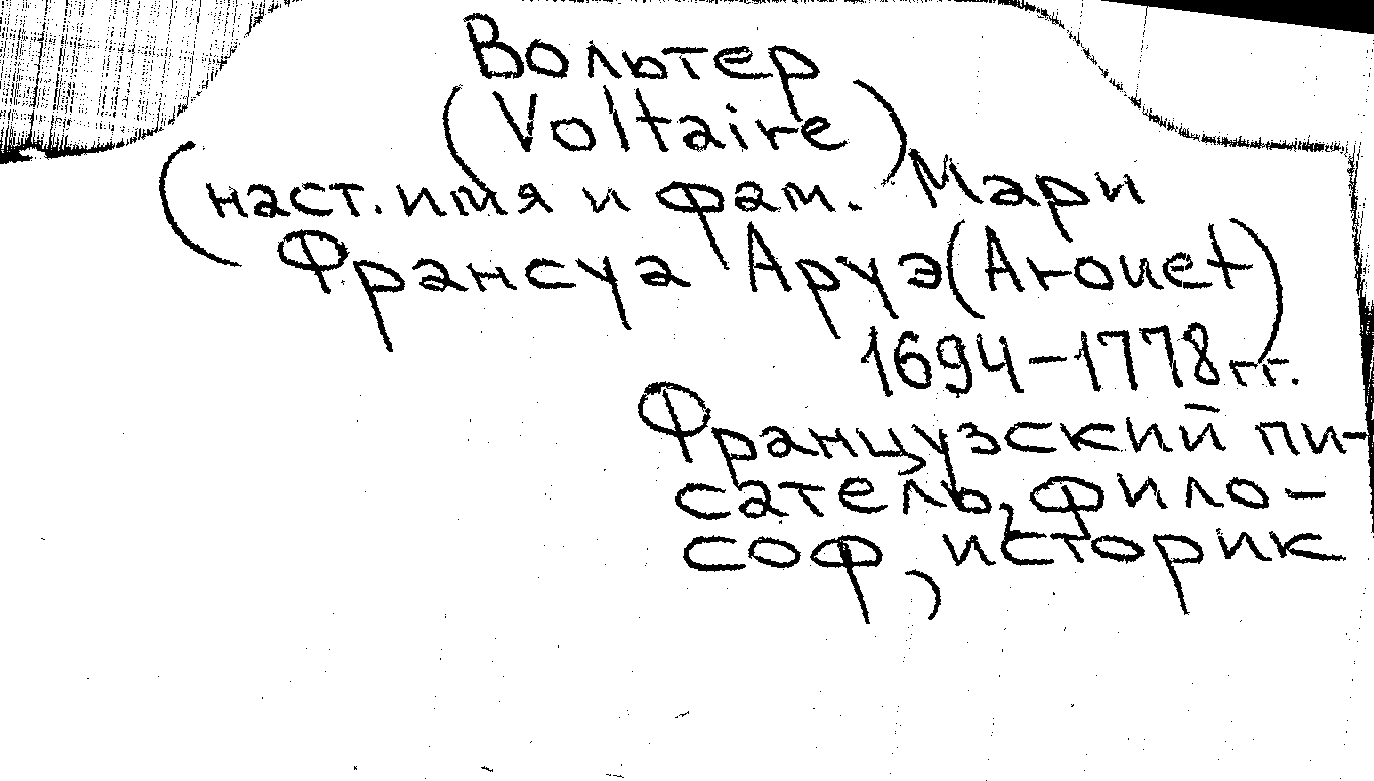 Вольтер
(Voltaire)
(наст. имя и фам. Мари
Франсуа Аруэ (Arouet)
1694–1778 гг.
Французский пи-
сатель, фило-
соф, историк